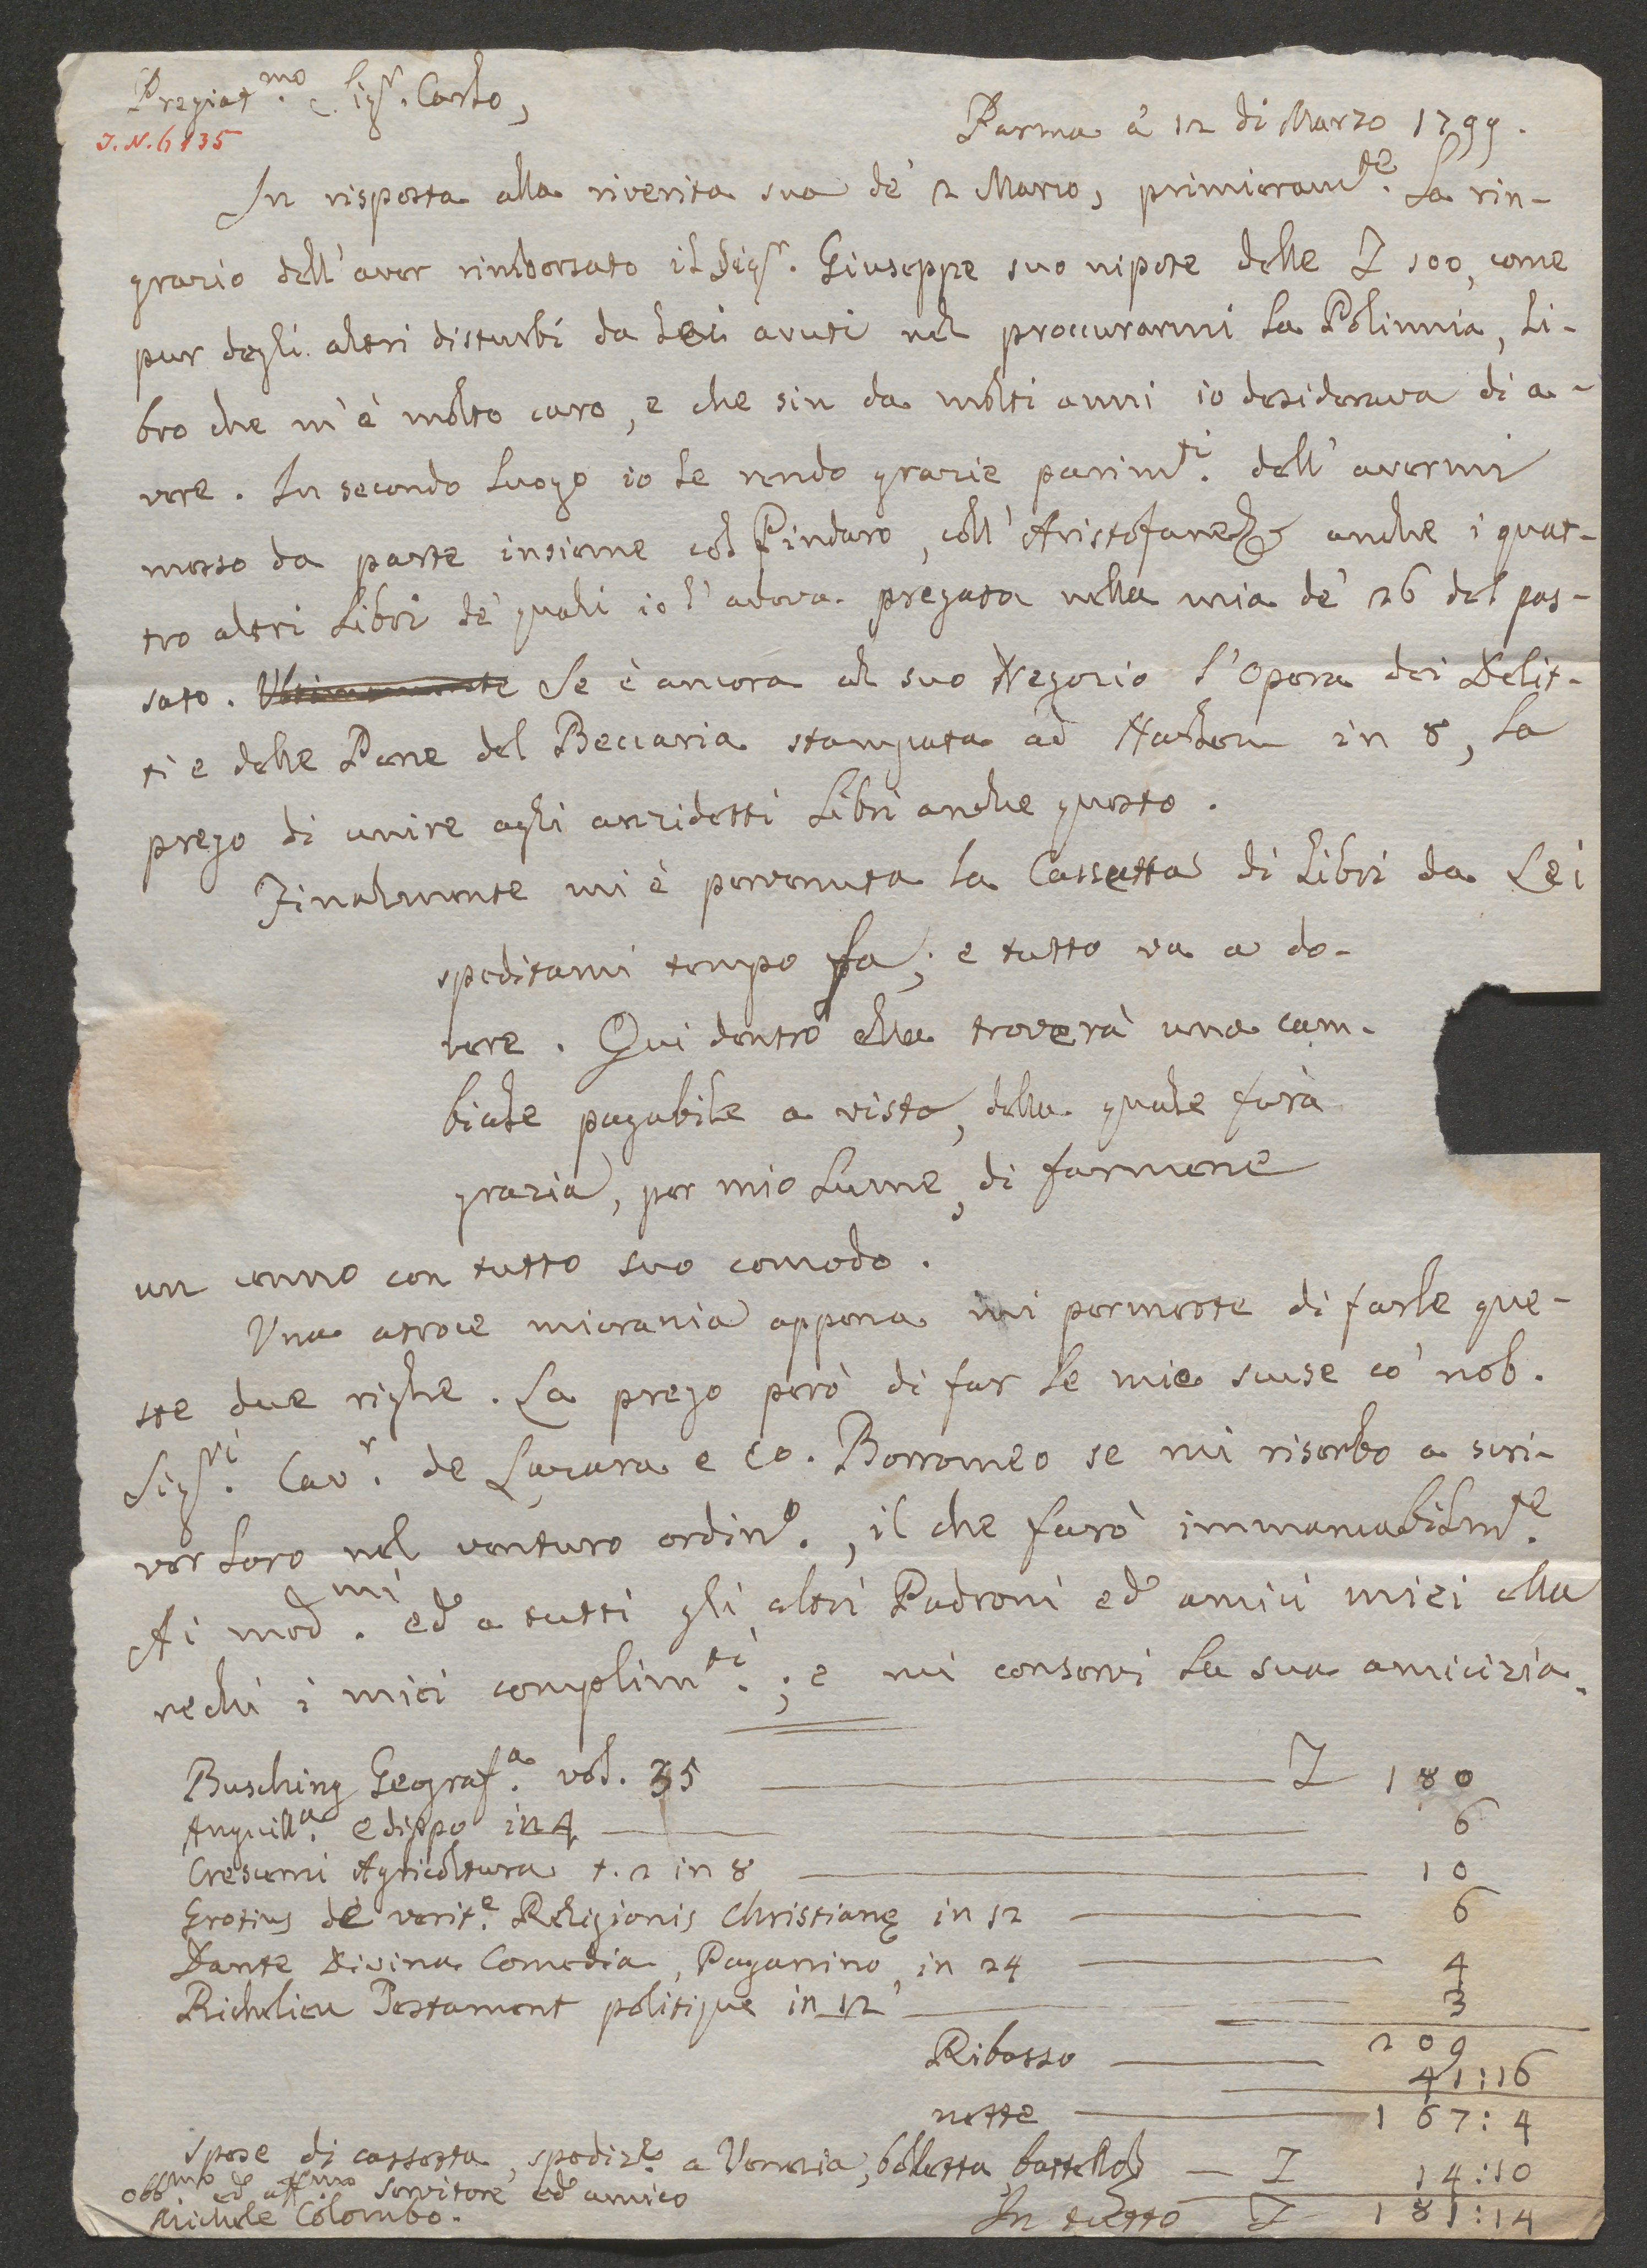 Pregiat.mo Sigr. Carlo,
J. N. 6135
Parma a' 12 di Marzo 1799.
In risposta alla riverita sua de' 2 Marzo, primieramte. La rin-
grazio dell'aver rimborsato il Sigr. Giuseppe suo nipote delle L 100, come
pur degli altri disturbi da Lei avuti nel proccurarmi la Polinnia, li-
bro che m'è molto caro, e che sin da molti anni io desiderava di a-
vere. In secondo luogo io Le rendo grazie parimti. dell'avermi
messo da parte insieme col Pindaro, coll'Aristofane &c. anche i quat-
tro altri Libri de' quali io l'aveva pregata nella mia de' 26 del pas-
sato. Ultimamente Se è ancora al suo Negozio l'Opera dei Delit-
ti e delle Pene del Beccaria stampata ad Harlem in 8, La
prego di unire agli anzidetti Libri anche questo.
Finalmente mi è pervenuta la Cassetta di Libri da Lei
speditami tempo fa; e tutto va a do-
vere. Qui dentro ella troverà una cam-
biale pagabile a vista, della quale farà
grazia, per mio Lume, di farmene
un cenno con tutto suo comodo.
Una atroce micrania appena mi permette di farle que-
ste due righe. La prego però di far le mie scuse co' nob.
Sigri. Cavr. de Lazara e Co. Borromeo se mi riserbo a scri-
ver loro nel venturo ordino., il che farò immancabilmte.
Ai medmi. ed a tutti gli altri Padroni ed amici miei ella
rechi i miei complimti.; e mi conservi la sua amicizia.
Busching Geografa. vol. 35 L 180
Anguilla. edippo in 4 6
Crescenzi Agricoltura t. 2 in 8 10
Grotius de verite. Religionis Christianę in 12 6
Dante Divina Comedia, Paganino, in 24 4
Richelieu Testament politique in 12 3
209
Ribasso 41:16
nette 167:4
Spese di cassetta, spedize. a Venezia, bolletta battello L 14:10
In tutto L 181:14
Obbmo ed affmo servitore ed amico
Michele Colombo.